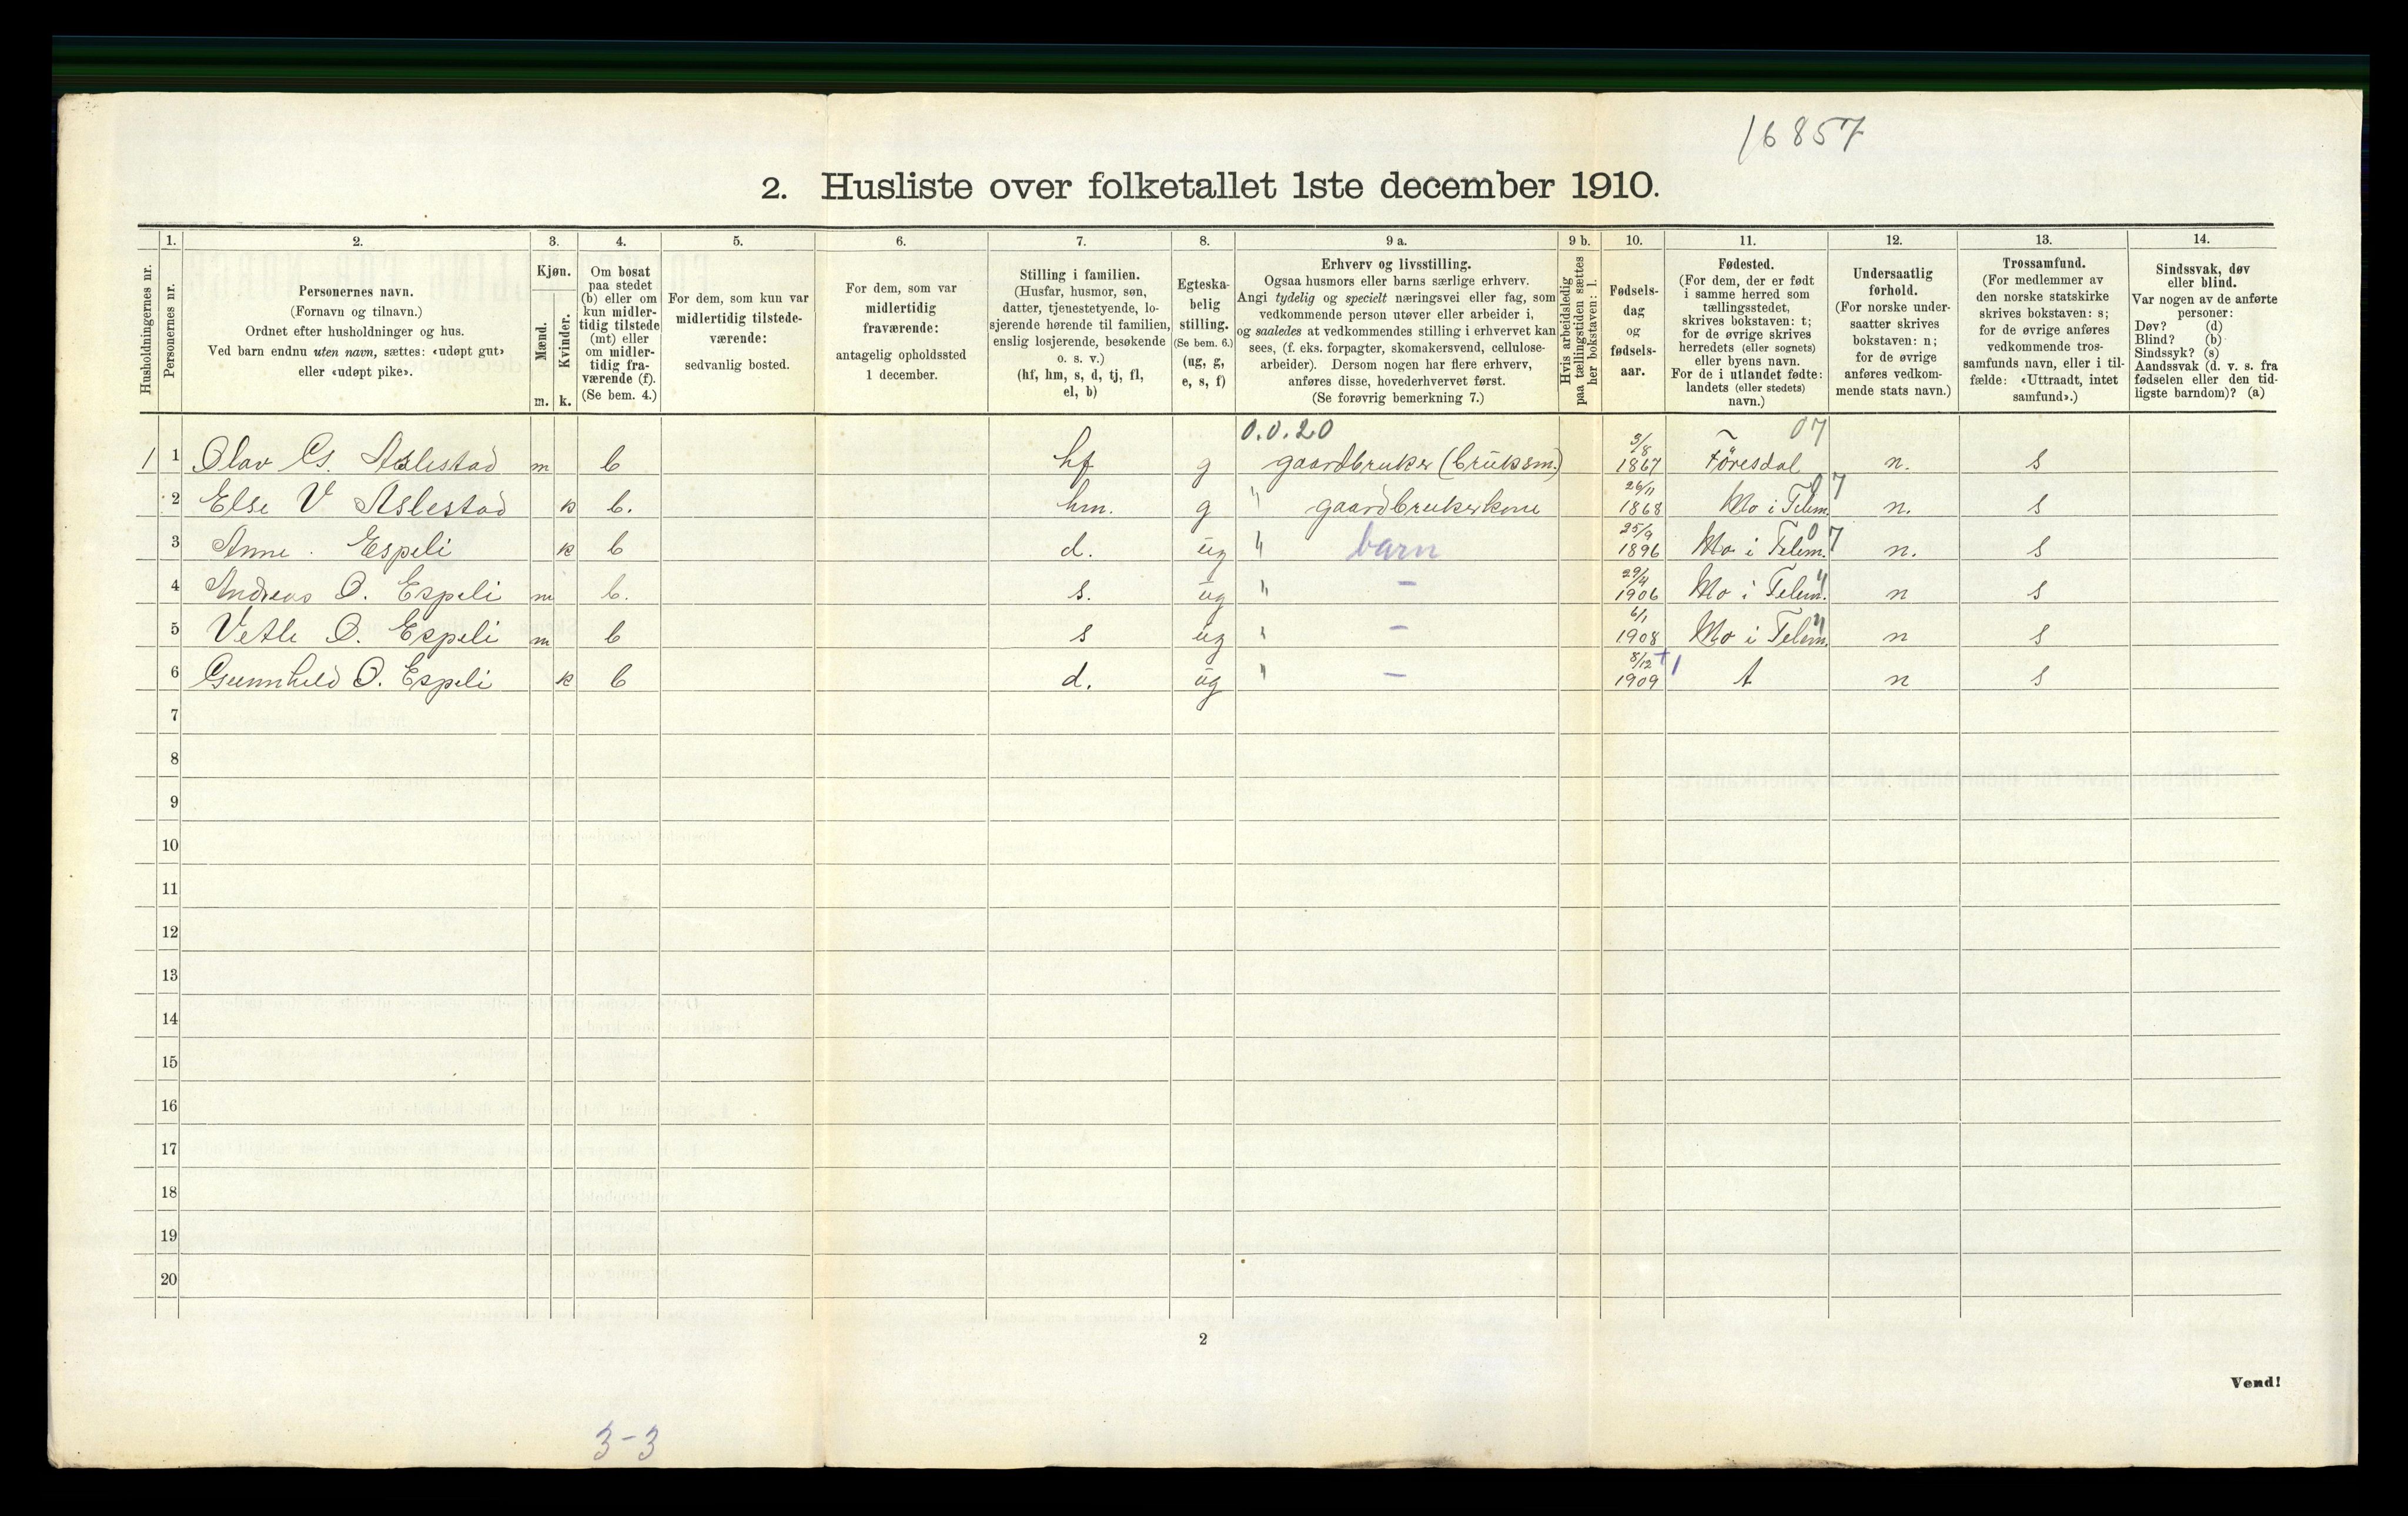 16857
2. Husliste over folketallet 1ste december 1910.
Husholdningernes nr.
1.
Personernes nr.
2.
Personernes navn.
(Fornavn og tilnavn.)
Ordnet efter husholdninger og hus.
Ved barn endnu uten navn, sættes: «udøpt gut»
eller «udøpt pike».
3.
Kjøn.
Mænd.
Kvinder.
m. k.
4.
Om bosat
paa stedet
(b) eller om
kun midler-
tidig tilstede
(mt) eller
om midler-
tidig fra-
værende (f).
(Se bem. 4.)
5.
For dem, som kun var
midlertidig tilstede-
værende:
sedvanlig bosted.
6.
For dem, som var
midlertidig
fraværende:
antagelig opholdssted
1 december.
7.
Stilling i familien.
(Husfar, husmor, søn,
datter, tjenestetyende, lo-
sjerende hørende til familien,
enslig losjerende, besøkende
o. s. v.)
(hf, hm, s, d, tj, fl,
el, b)
8.
Egteska-
belig
stilling.
(Se bem. 6.)
(ug, g,
e, s, f)
9 a.
Erhverv og livsstilling.
Ogsaa husmors eller barns særlige erhverv.
Angi tydelig og specielt næringsvei eller fag, som
vedkommende person utøver eller arbeider i,
og saaledes at vedkommendes stilling i erhvervet kan
sees, (f. eks. forpagter, skomakersvend, cellulose-
arbeider). Dersom nogen har flere erhverv,
anføres disse, hovederhvervet først.
(Se forøvrig bemerkning 7.)
9 b.
Hvis arbeidsledig
paa tællingstiden sættes
her bokstaven: l.
10.
Fødsels-
dag
og
fødsels-
aar.
11.
Fødested.
(For dem, der er født
i samme herred som
tællingsstedet,
skrives bokstaven: t;
for de øvrige skrives
herredets (eller sognets)
eller byens navn.
For de i utlandet fødte:
landets (eller stedets)
navn.)
12.
Undersaatlig
forhold.
(For norske under-
saatter skrives
bokstaven: n;
for de øvrige
anføres vedkom-
mende stats navn.)
13.
Trossamfund.
(For medlemmer av
den norske statskirke
skrives bokstaven: s;
for de øvrige anføres
vedkommende tros-
samfunds navn, eller i til-
fælde: «Uttraadt, intet
samfund».)
14.
Sindssvak, døv
eller blind.
Var nogen av de anførte
personer:
Døv? (d)
Blind? (b)
Sindssyk? (s)
Aandssvak (d. v. s. fra
fødselen eller den tid-
ligste barndom)? (a)
0.0.20 07
1 1 Olav Gs. Aslestad m b hf g gaardbruker (bruksm.) 3/8 1867 Föresdal n. s
2 Else V Aslestad k b. hm. g " gaardbrukerkone 26/11 1868 Mo i Telem 07 n. s
3 Anne . Espeli k b d. ug " barn 25/9 1896 Mo i Telem. 07 n. s
4 Andreas O. Espeli m b. s. ug " – 29/4 1906 Mo i Telem. " n s
5 Vetle O. Espeli m b s ug " – 6/1 1908 Mo i Telem. " n s
6 Gunnhild O. Espeli k b d. ug " – 8/12 1909 +1 t n s
7
8
9
10
11
12
13
14
15
16
17
18
19
20
2
Vend!
3-3